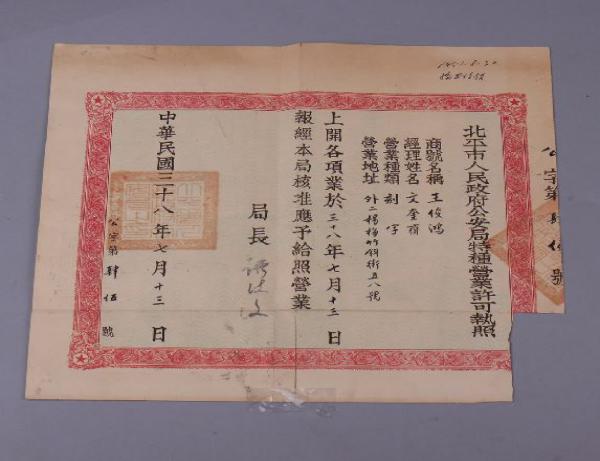 公字第肆伍號
北平市人民政府公安局特種營業許可執照
商號名稱 王俊鴻
經理姓名 文奎齋
營業種類 刻字
營業地址 外二楊梅竹斜街五八號
上開各項業於三十八年七月十三日
報經本局核准應予給照營業
局長
中華民國三十八年七月十三日
公字第肆伍號